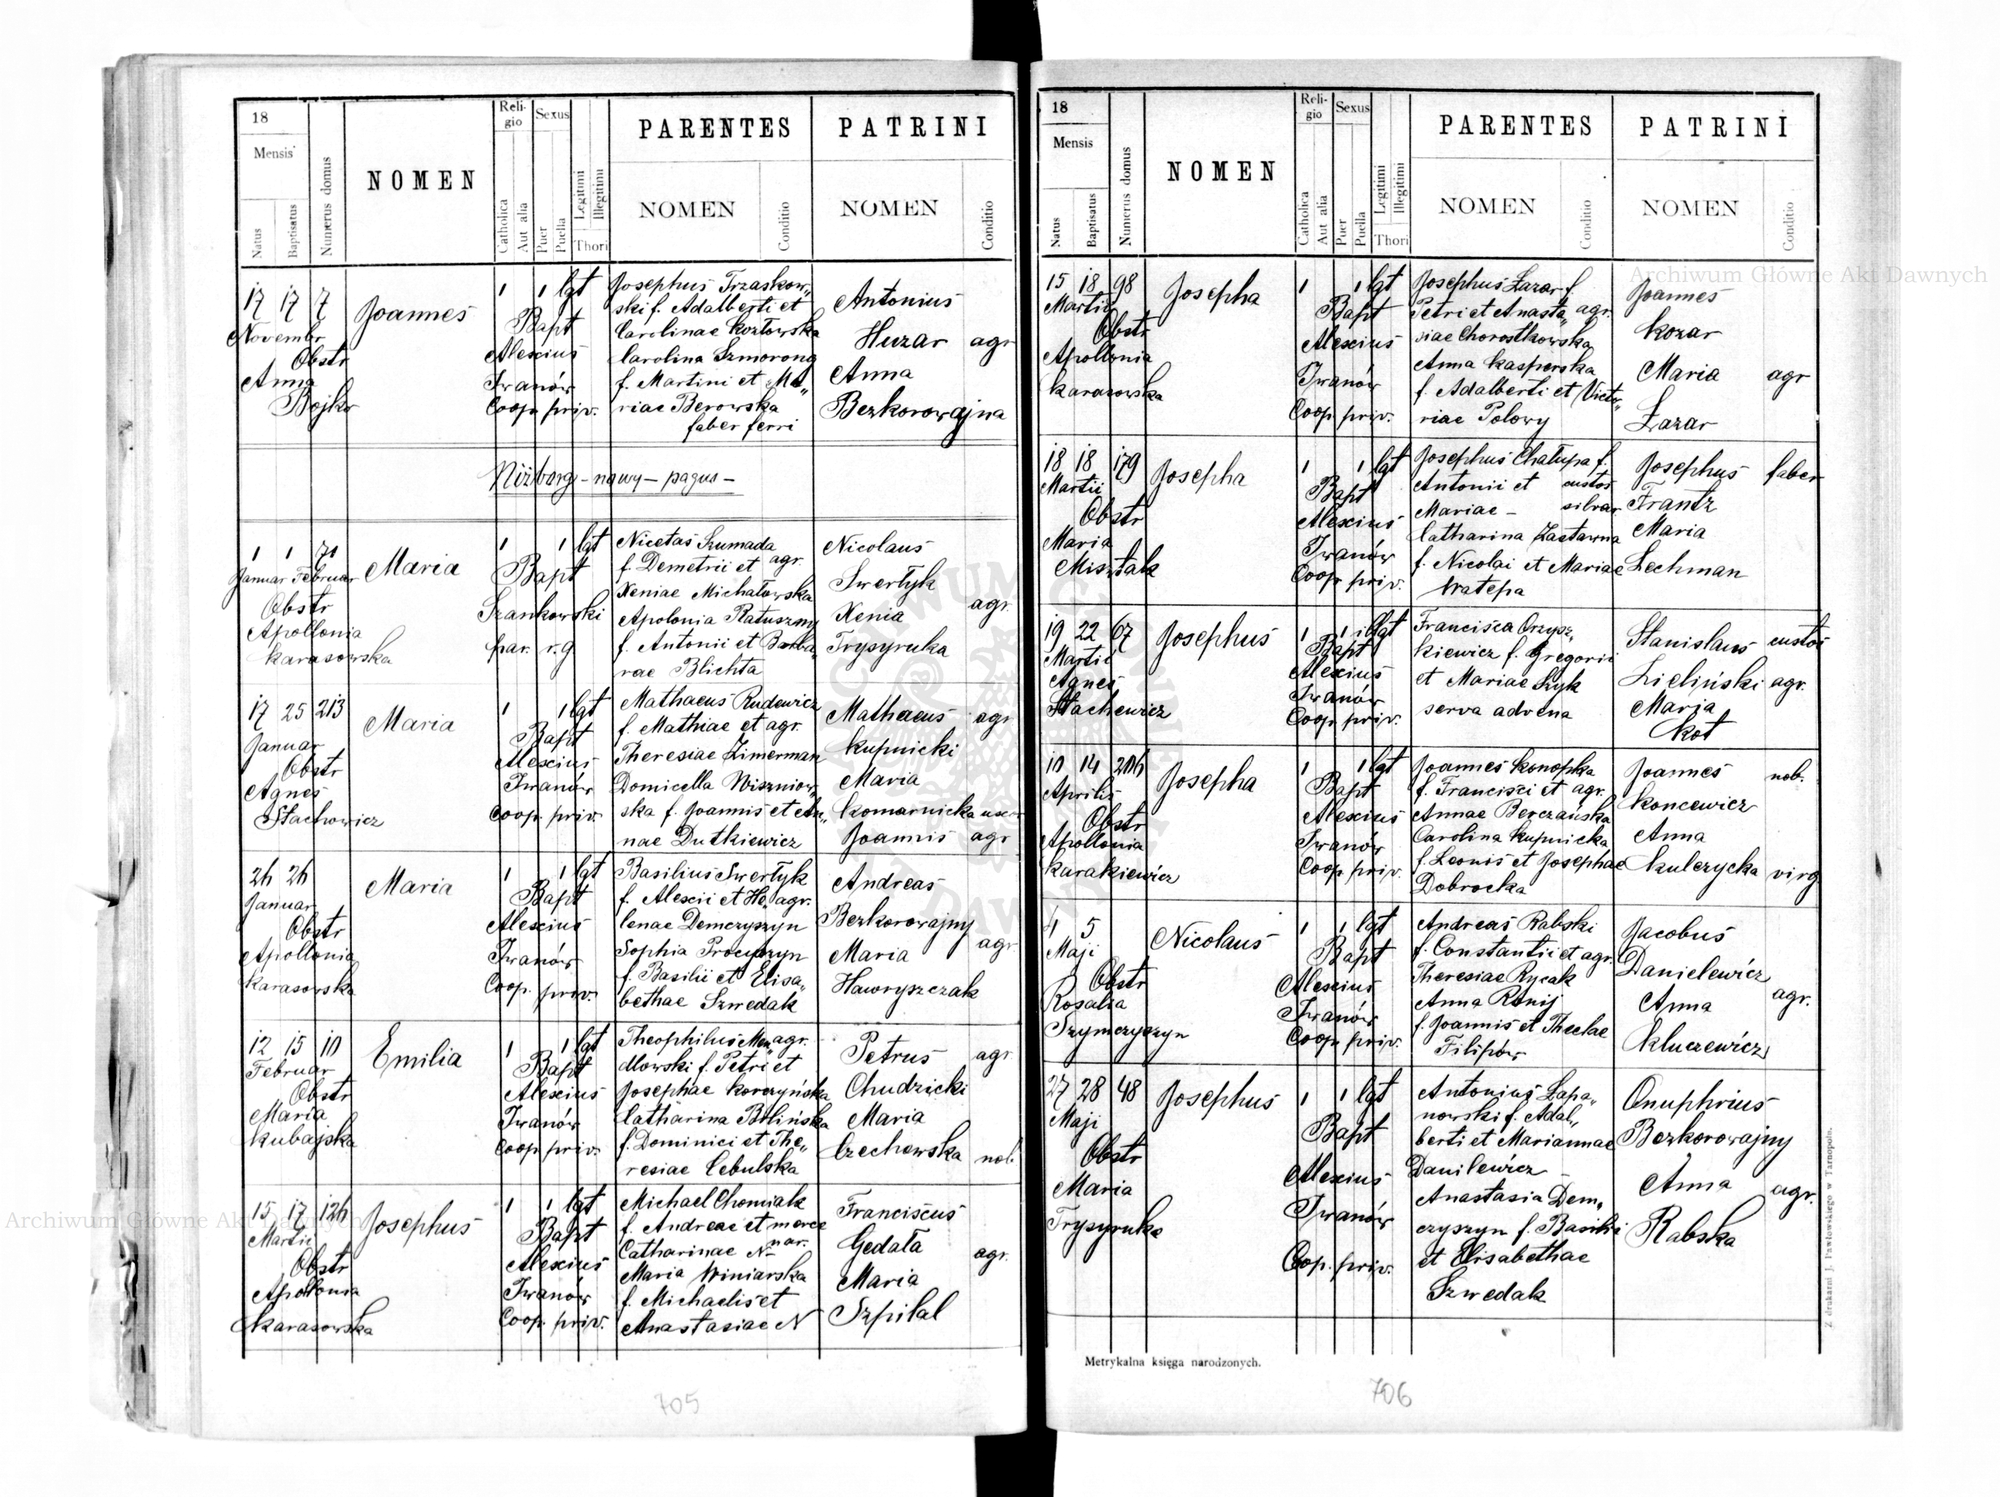 18
Mensis
Natus
Baptisatus
Numerus domus
NOMEN
Religio
Catholica
Aut alia
Sexus
Puer
Puella
Legitimi
Illegitimi
Thori
PARENTES
NOMEN
Conditio
PATRINI
NOMEN
Conditio
17 17 7
Novembr
Obstr
Anna
Bojko
Joannes
1 1 lgt
Bapt
Alexius
Iwanów
Coop. priv.
Josephus Trzaskow„
ski f. Adalberti et
Carolinae Kozłowska
Carolina Szmorong
f. Martini et Ma„
riae Berowska
faber ferri
Antonius
Huzar agr
Anna
Bezkorowajna
Niżborg - nowy - pagus -
1 1 71
Januar Februar
Obstr
Apollonia
Karasowska
Maria
1 1 lgt
Bapt
Szankowski
par. r. g
Nicetas Szumada
f. Demetrii et agr.
Xeniae Michałowska
Apolonia Ratuszny
f. Antonii et Barba„
rae Blichta
Nicolaus
Swertyk
Xenia agr.
Trysyruka
17 25 213
Januar
Obstr
Agnes
Stachowicz
Maria
1 1 lgt
Bapt
Alexius
Iwanów
Coop. priv.
Mathaeus Rudewicz
f. Mathiae et agr.
Theresiae Zimerman
Domicella Wiszniow„
ska f. Joannis et An„
nae Dutkiewicz
Mathaeus agr
Kupnicki
Maria
Komarnicka uxor
Joannis agr
26 26
Januar
Obstr
Apollonia
Karasowska
Maria
1 1 lgt
Bapt
Alexius
Iwanów
Coop. priv.
Basilius Swertyk
f. Alexii et He„ agr.
lenae Demczyszyn
Sophia Procyszyn
f. Basilii et Elisa„
bethae Szwedak
Andreas
Bezkorowajny
Maria agr
Hawryszczak
12 15 10
Februar
Obstr
Maria
Kubajska
Emilia
1 1 lgt
Bapt
Alexius
Iwanów
Coop. priv.
Theophilus Men„ agr.
dlowski f. Petri et
Josephae Korczyńska
Catharina Bilińska
f. Dominici et The„
resiae Cebulska
Petrus agr
Chudzicki
Maria
Czechowska nob.
15 17 126
Martii
Obstr
Apollonia
Karasowska
Josephus
1 1 lgt
Bapt
Alexius
Iwanów
Coop. priv.
Michael Chomiak
f. Andreae et merce
Catharinae N- nar.
Maria Winiarska
f. Michaelis et
Anastasiae N
Franciscus
Gędała
Maria agr.
Szpital
705
18
Mensis
Natus
Baptisatus
Numerus domus
NOMEN
Religio
Catholica
Aut alia
Sexus
Puer
Puella
Legitimi
Illegitimi
Thori
PARENTES
NOMEN
Conditio
PATRINI
NOMEN
Conditio
15 18 98
Martii
Obstr
Apollonia
Karasowska
Josepha
1 1 lgt
Bapt
Alexius
Iwanów
Coop. priv.
Josephus Łazar f.
Petri et Anasta„ agr.
siae Chorostkowska
Anna Kasperska
f. Adalberti et Victo„
riae Polowy
Joannes
Kozar
Maria agr
Łazar
18 18 179
Martii
Obstr
Maria
Misztak
Josepha
1 1 lgt
Bapt
Alexius
Iwanów
Coop. priv.
Josephus Chałupa f.
Antonii et custos
Mariae - silvar
Catharina Zastawna
f. Nicolai et Mariae
Kratepa
Josephus faber
Frantz
Maria
Lechman
19 22 67
Martii
Agnes
Stachewicz
Josephus
1 1 illgt
Bapt
Alexius
Iwanów
Coop. priv.
Francisca Orzysz„
kiewicz f. Gregorii
et Mariae Szyk
serva advena
Stanislaus custos
Zieliński agr.
Maria
Kot
10 14 206
Aprilis
Obstr
Apollonia
Karakiewicz
Josepha
1 1 lgt
Bapt
Alexius
Iwanów
Coop. priv.
Joannes Konopka
f. Francisci et agr.
Annae Berczańska
Carolina Kupnicka
f. Leonis et Josephae
Dobrocka
Joannes nob.
Koncewicz
Anna
Kulczycka virg
4 5
Maji
Obstr
Rosalia
Szymczyszyn
Nicolaus
1 1 lgt
Bapt
Alexius
Iwanów
Coop. priv.
Andreas Rabski
f. Constantii et agr.
Theresiae Rycak
Anna Rtnij
f. Joannis et Theclae
Filipów
Jacobus
Danielewicz
Anna agr.
Kluczewicz
27 28 48
Maji
Obstr
Maria
Trysyruka
Josephus
1 1 lgt
Bapt
Alexius
Iwanów
Coop. priv.
Antonius Łapa„
nowski f. Adal„
berti et Mariannae
Danilewicz
Anastasia Dem„
czyszyn f. Basilii
et Elisabethae
Szwedak
Onuphrius
Bezkorowajny
Anna agr.
Rabska
Metrykalna księga narodzonych.
Z drukarni J. Pawłowskiego w Tarnopolu.
706
Archiwum Główne Akt Dawnych
Archiwum Główne Akt Dawnych